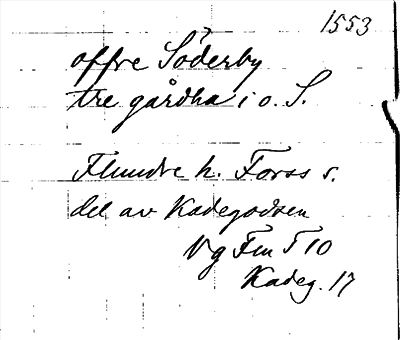 1553
offre Söderby
tre gårdha i o. S.
Flundre h. Forss s.
del av Kadegodsen
Vg Fm 5 10
Kadeg. 17